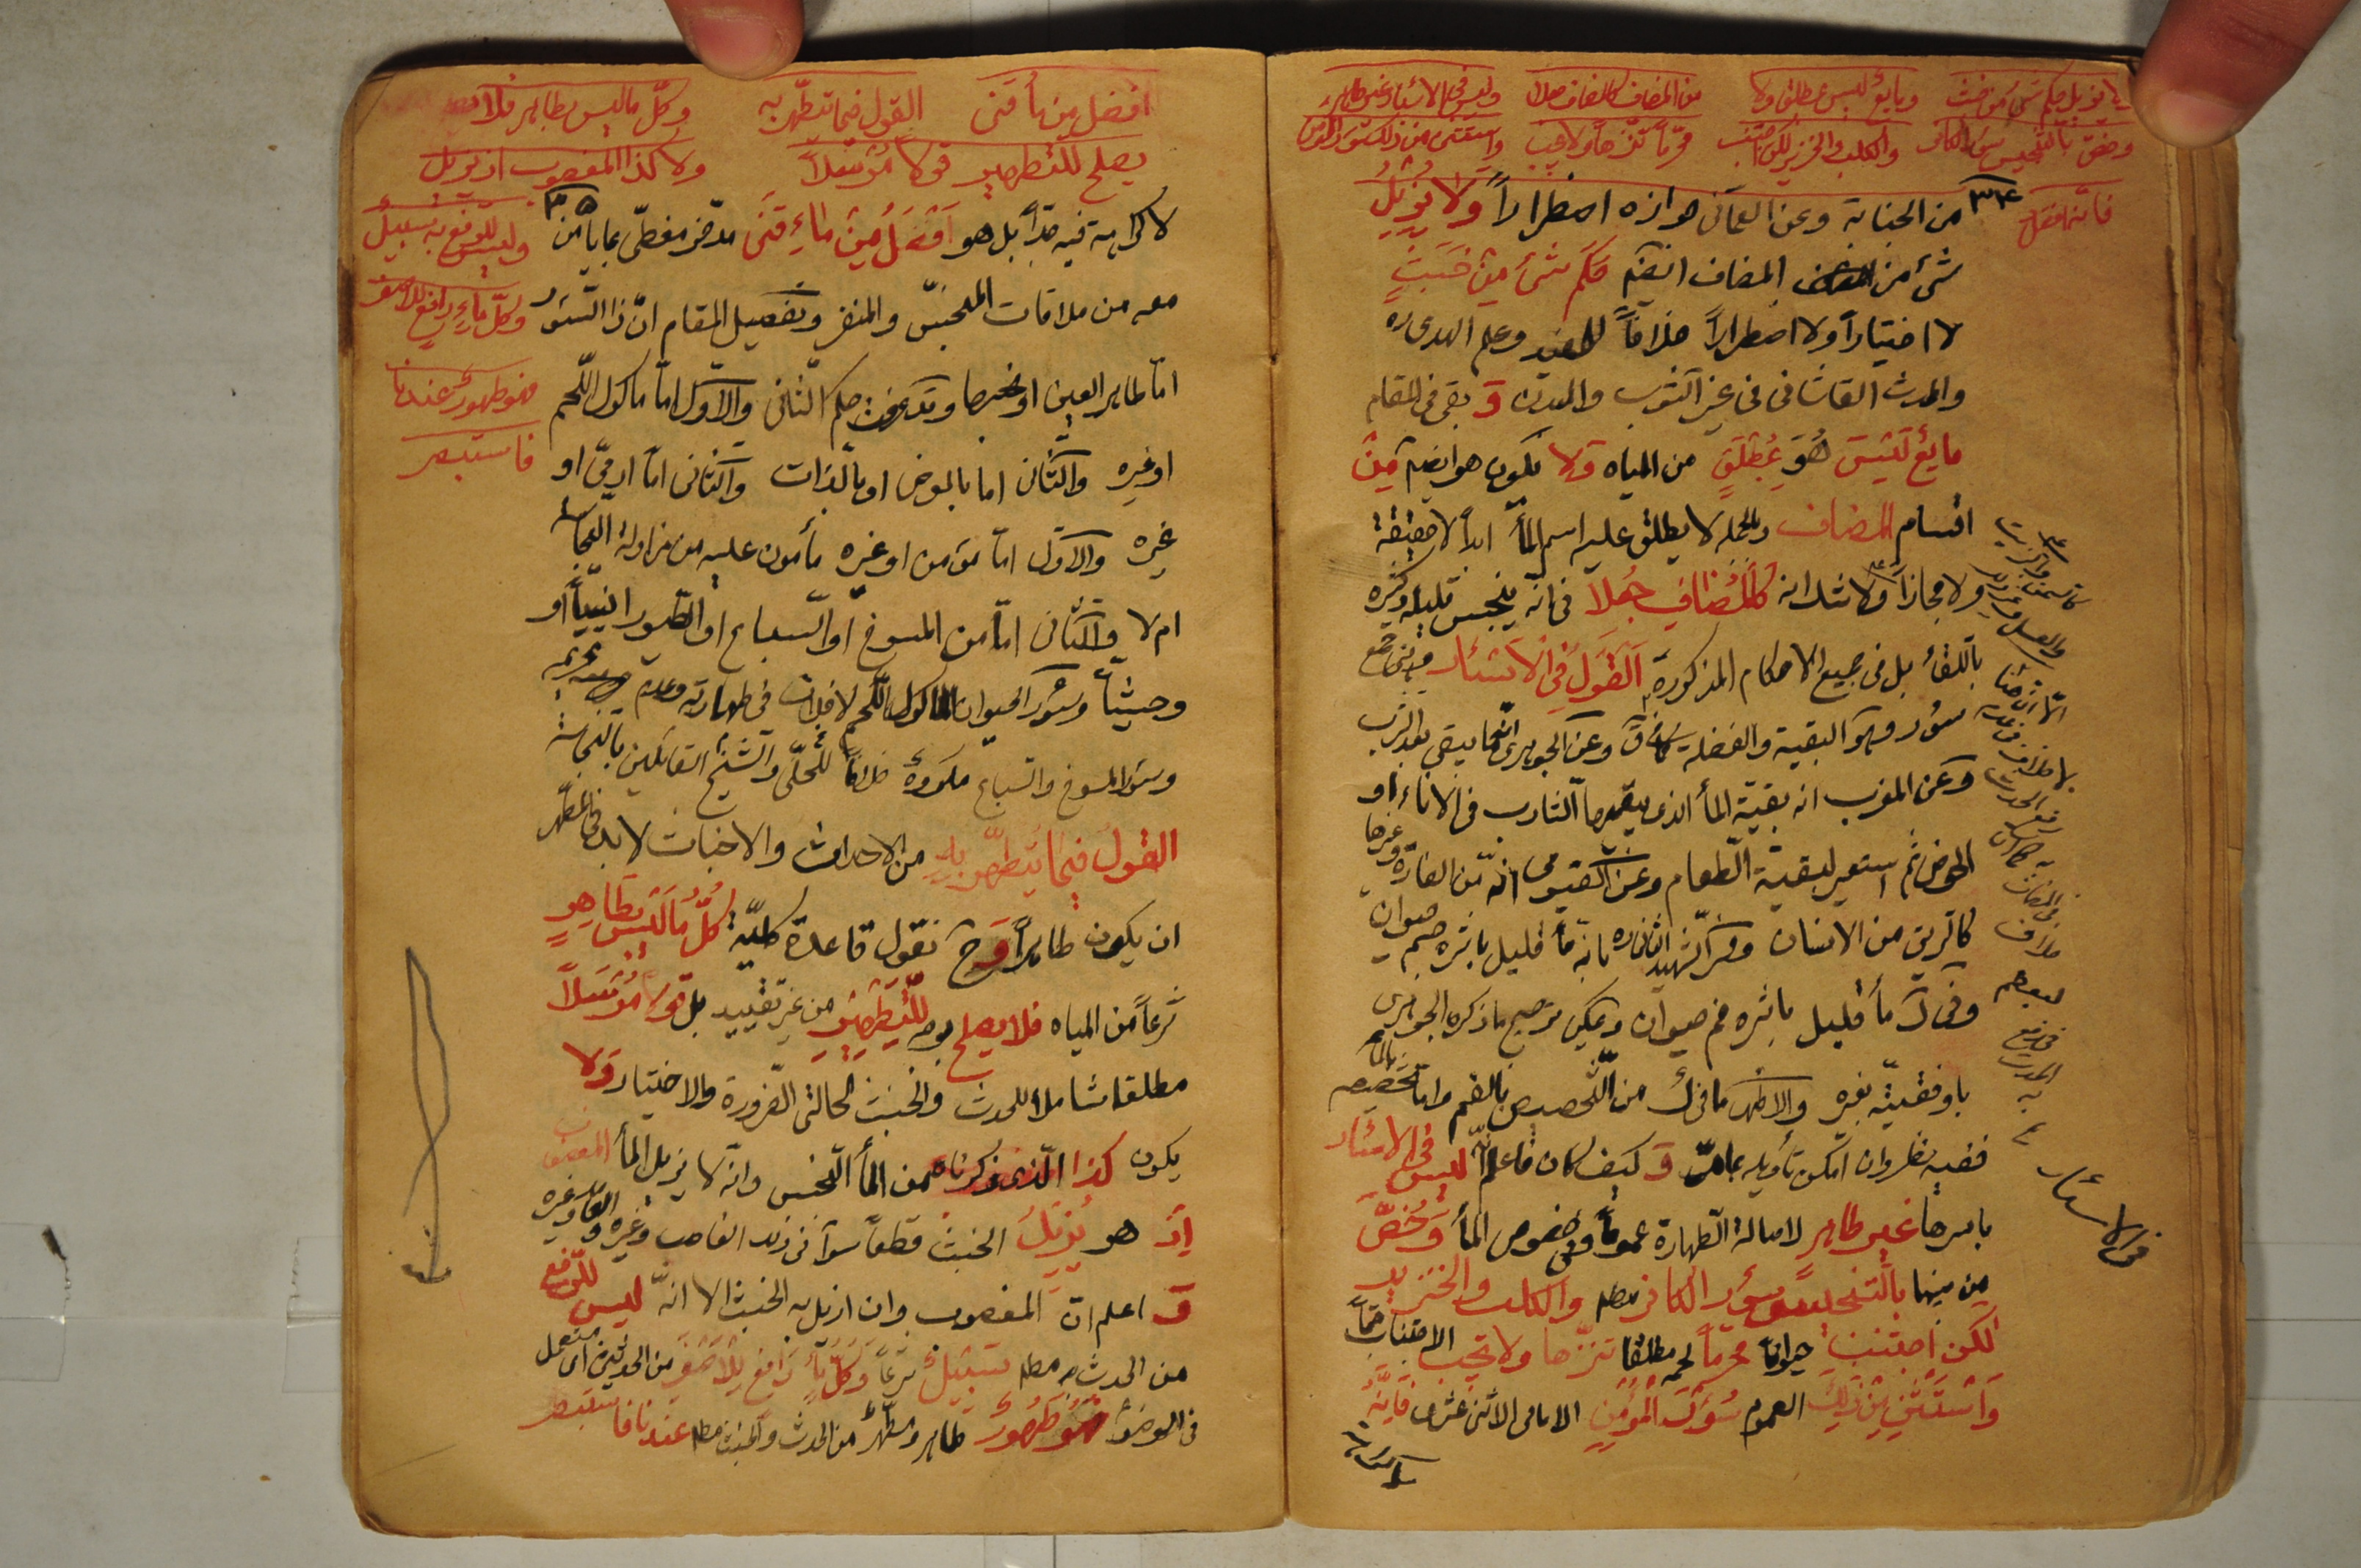 ولا يزيل حكم شئ من خبث ومايع ليس بمطلق ولا من المضاف كالمضاف جعلا وليس في الاسئار غير طاهر
وخص بالتنجيس سؤر الكافر والكلب والخنزير لكن اجتنب محرّماً تنزّهاً ولا يجب واستثن من ذلك سؤر المؤمن
فانّه افضل
٣٤
من الجنابة وعن العمّاني جوازه اضطراراً وَلا يُزيلُ
شئ من المضاف ايضم حكم شئ مِن خَبَثٍ
لا اختياراً ولا اضطراراً خلافاً للمفيد وعلم الهدى ره
والمحدث القاشاني في غير الثوب والبدن وَ بقي في المقام
مايع لَيْسَ هُوَ بِمُطْلَقٍ من المياه وَلا يكون هو ايضم مِنْ
اقسام المضاف وبالجملة لا يطلق عليه اسم المأ ابداً لا حقيقة
ولا مجازاً ولا شك انه كَالْمُضافِ جُعِلا في انّه ينجس قليله وكثيره
باللقأ بل في جميع الاحكام المذكورة اَلْقَوْلُ فِي الْاَسْئارِ جمع
سؤر وهو البقية والفضلة كما في ق وعن الجوهري انّها ما يبقى بعد الشرب
وعن المغرب انه بقيّة المأ الذي يبقيها الشارب في الاناء او
الحوض ثم استعير لبقيّة الطّعام وعن الفيّومي انّه من الفارة وغيرها
كالريق من الانسان وفسّر الشّهيد الثاني ره بانه مأ قليل باشره جسم حيوان
وفي ك مأ قليل باشره فم حيوان ويمكن ترجيح ما ذكره الجوهري
باوفقيّته بغيره والاظهر ما في ك من التّخصيص بالفم واما تخصيصه بالمأ
ففيه نظر وان امكن تأويله بما مرّ وَ كيف كان فاعلم انّه ليس في الاسئار
باسرها غير طاهر لاصالة الطّهارة عموماً وفي خصوص المأ وَخُصَّ
من بينها بالتّنجيس سؤر الكافر مطم والكلب والخنزير
لكن اجتنب حيواناً محرّماً لحمه مطلقاً تنزّهاً ولا يجب الاجتناب حتماً
وَاسْتَثْنِ مِنْ ذلِكَ العموم سُؤرَ الْمُؤْمِنِ الامامى الاثنى عشرى فَاِنَّهُ
لاكراهة
كالسمن والزيت
والعسل وغيرها
خلاف
لبعضهم
في رفع
الحدث
به
في الاسئار
افضل من مأ قنى القول فيما تطهّر به وكلّ ما ليس بطاهر فلا
يصلح للتطهير قولا مرسلاً ولا كذا المغصوب اذ يزيل
وليس للرفع به سبيل
وكلّ ماءٍ رافع للاصغر
فهو طهور عندنا
فاستبصر
٣٥
لا كراهة فيه جدّاً بل هو اَفْضَلُ مِنْ ماءٍ قَنَى مدّخر مغطّى بما يأمن
معه من ملاقات المنجّس والمنفر وتفصيل المقام انّ ذا السّؤر
امّا طاهر العين او نجسها وقد عرفت حكم الثّاني والاوّل امّا ماكول اللّحم
او غيره والثّاني اما بالعرض او بالّذات والثّاني امّا ادميّ او
غيره والاوّل امّا مؤمن او غيره مأمون عليه من مزاولة النجاسة
ام لا والثّاني امّا من المسوخ او السّباع او الطّيور انسيّاً او
وحشيّاً وسؤر الحيوان الماكول اللّحم لا خلاف في طهارته وعدم
وسؤر المسوخ والسّباع مكروهٌ خلافاً للحلّي والشّيخ القائلين بالنجاسة
القول فيما يُتطهّر به من الاحداث والاخباث لابد في المطهّر
ان يكون طاهراً وَ ح نقول قاعدة كليّة كُلُّ مَا لَيْسَ بِطَاهِرٍ
شرعاً من المياه فلا يصلح بوجه للتّطْهيرِ من غير تقييد بل قولا مُرْسَلاً
مطلقا شاملا للحدث والخبث لحالتي الضّرورة والاختيار وَلا
يكون كذا الّذي ذكرناه من المأ النّجس وانّه لا يزيل المأ المغصوب
اِذْ هو يُزيلُ الخبث قطعاً سوآء في ذلك الغاصب وغيره والعالم وغيره
وَ اعلم انّ المغصوب وان ازيل به الخبث الا انّه ليس للرّفع
من الحدث به مطم سَبيلٌ شرعاً وَكُلُّ ماءٍ رافِعٍ لِلْاَصْغَرِ من الحدثين اى مستعمل
في الوضؤ فهو طَهُورٌ طاهر ومطهّر من الحدث والخبث مطم عندنا فاستبصر